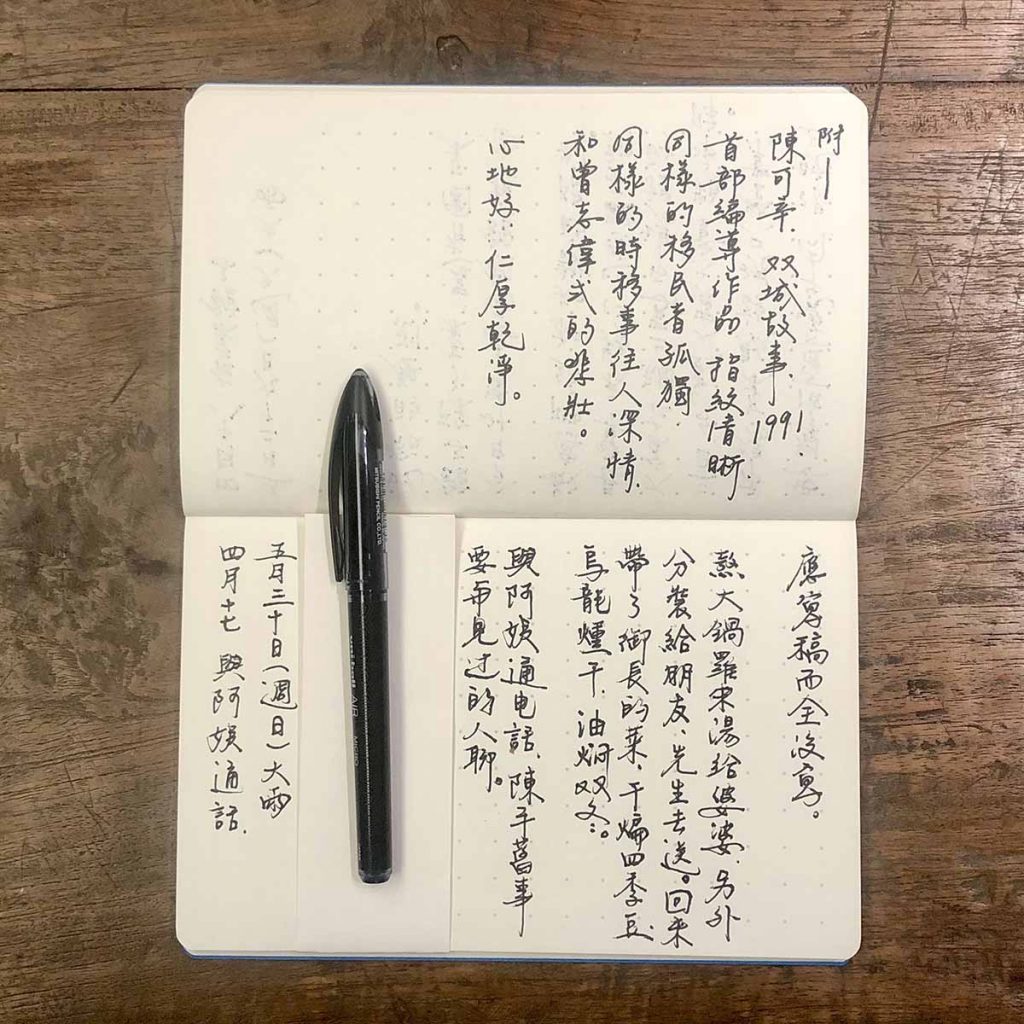 附一
陳可辛．双城故事．1991．
首部編導作品．指紋清晰．
同樣的移民者孤獨．
同樣的時移事往人深情．
和曾志偉式的悲壯。
心地好．仁厚乾淨。
應寫稿而全沒寫。
熬大鍋羅宋湯給婆婆．另外
分裝給朋友、先生去送。回來
帶了御長的菜，干煸四季豆．
烏龍燻干．油燜双冬。
與阿娛通电話．陳年舊事
要再見過的人聊。
五月三十日（週日）大雨
四月十七 與阿娛通話．
MITSUBISHI PENCIL CO.,LTD
AIR MICRO